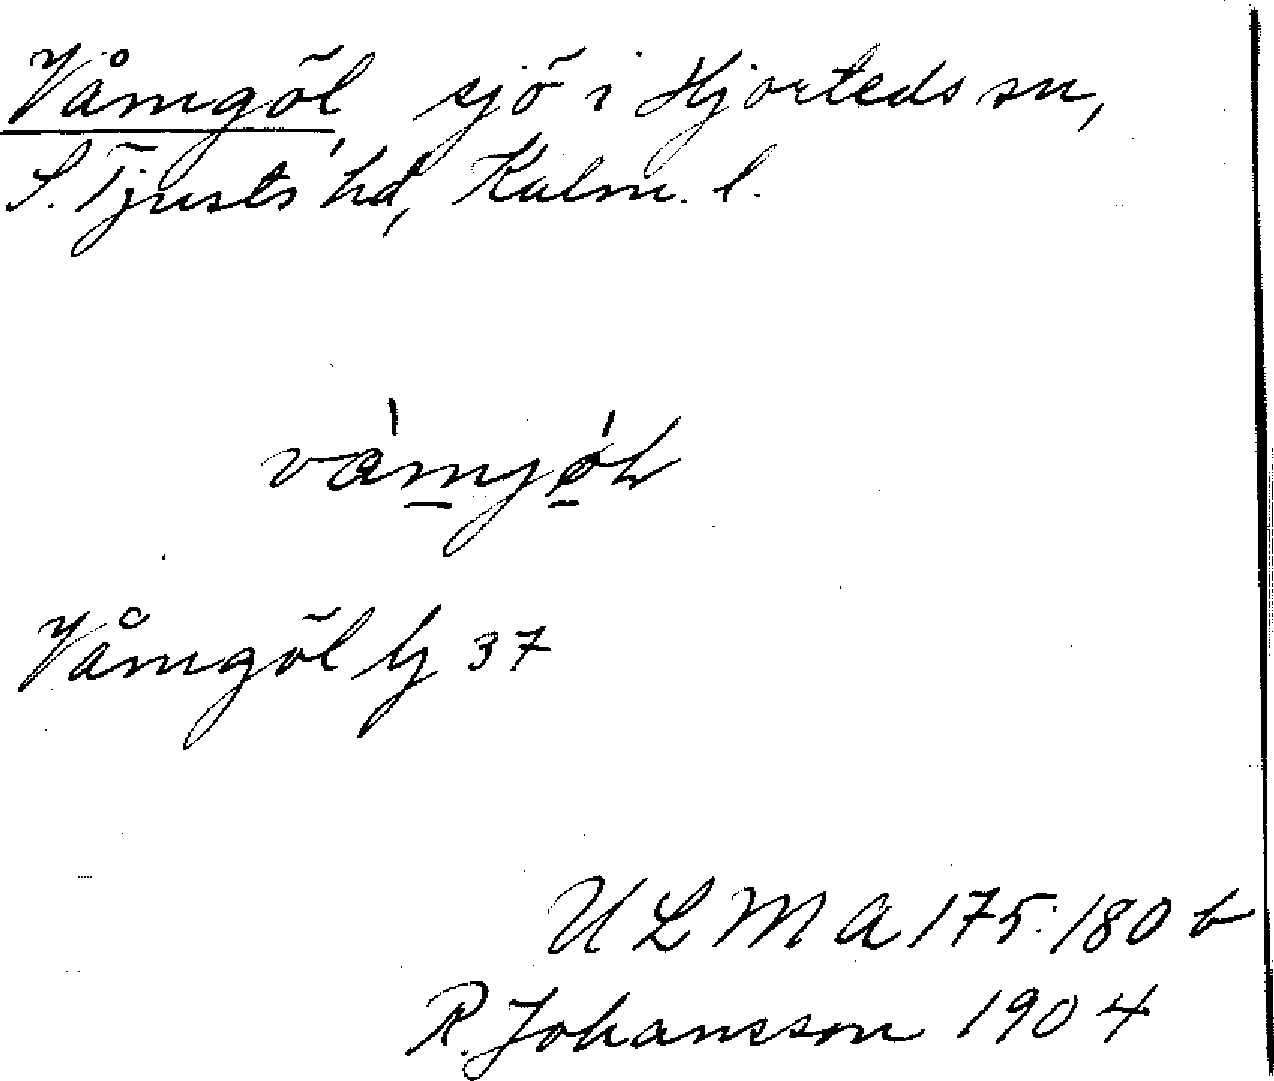 Våmgöl sjö i Hjorteds sn,
S. Tjusts hd, Kalm. l.
Våmgöl lj 37
ULMA 175:180 b
R. Johansson 1904